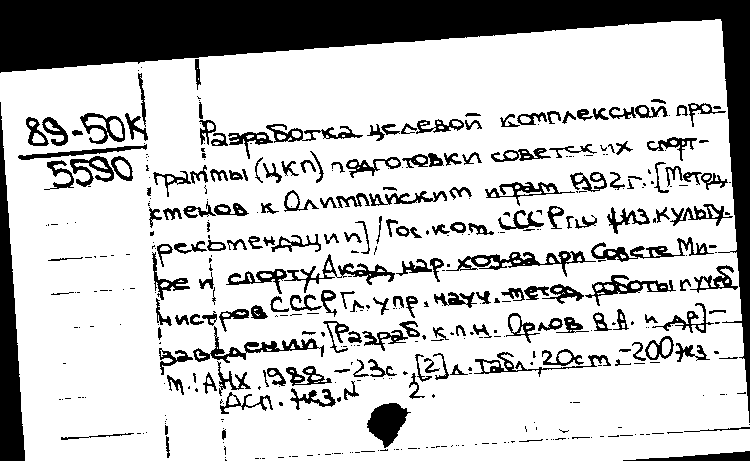 89-50К
5590
Разработка целевой комплексной про=
граммы (ЦКП) подготовки советских спорт-
сменов к Олимпийским играм 1992 г.: [Метод.
рекомендации] / Гос. ком. СССР по физ. культу-
ре и спорту, Акад. нар. хоз-ва при Совете Ми-
нистров СССР, Гл. упр. науч.-метод. работы и учеб.
заведений; [Разраб. к.п.н. Орлов В.А. и др.] -
М.: АНХ, 1988. - 23с., [2] л. табл.; 20см. - 200 экз.
Асп. экз. № 2.